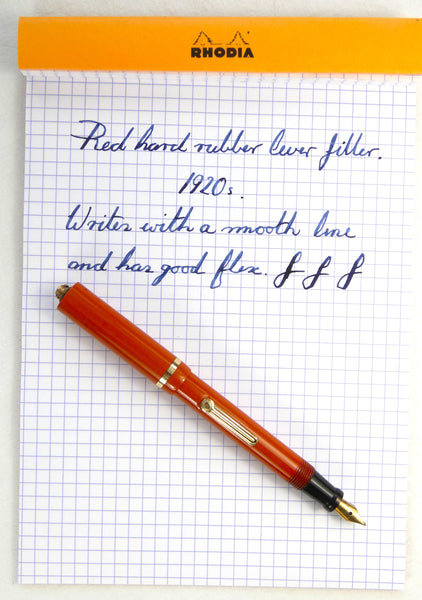 RHODIA
Red hard rubber lever filler.
1920s.
Writes with a smooth line
and has good flex. f f f